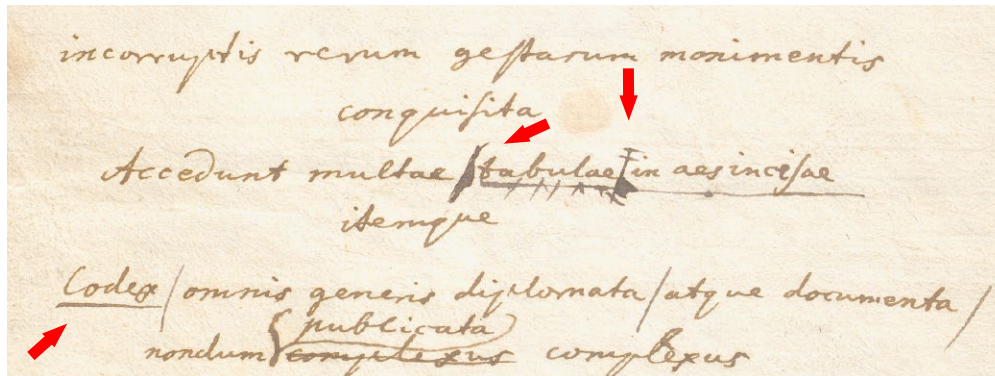 incorruptis rerum gestarum monimentis
conquisita
Accedunt multae tabulae in aes incisae
itemque
Codex / omnis generis diplomata / atque documenta /
publicata
nondum complexus complexus